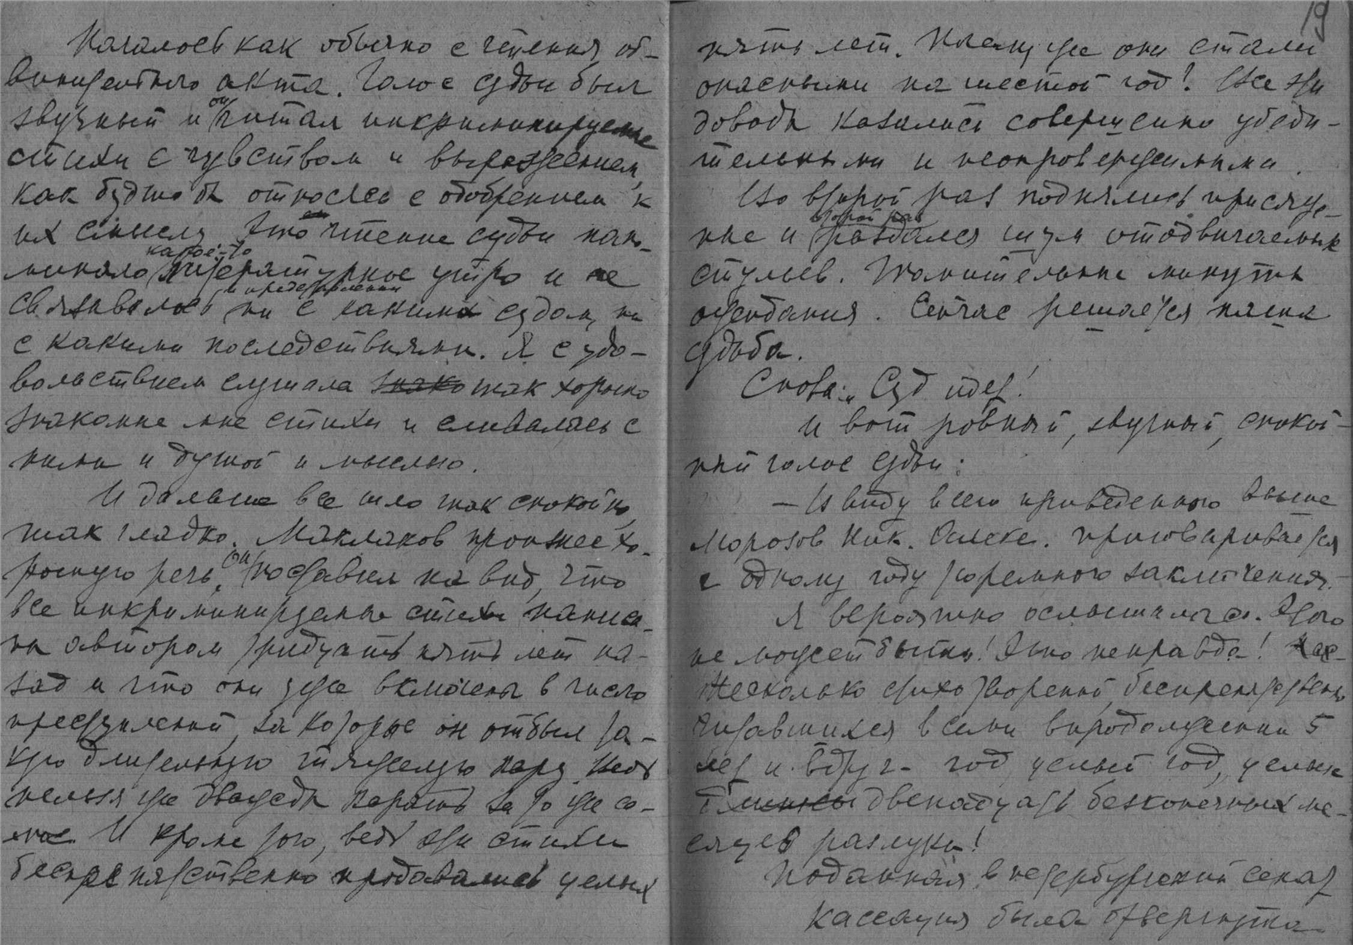 Началось как обычно с чтения об-
винительного акта. Голос судьи был
звучный и он читал инкриминируемые
стихи с чувством и выражением,
как будто бы относясь с одобрением к
их смыслу. Это чтение судьи напо-
минало какое-то литературное утро и не
связывалось в представлении ни с каким судом, ни
с какими последствиями. Я с удо-
вольствием слушала так хорошо
знакомые мне стихи и сливалась с
ними и душой и мыслью.
И дальше все шло так спокойно,
так гладко. Маклаков произнес хо-
рошую речь, он поставил на вид, что
все инкриминируемые стихи написа-
ны автором тридцать пять лет на-
зад и что они уже включены в число
преступлений, за которые он отбыл та-
кую длительную тяжелую кару. Ведь
нельзя же дважды карать за то же са-
мое. И кроме того, ведь эти стихи
беспрепятственно продавались целых
19
пять лет. Почему же они стали
опасными на шестой год! Все эти
доводы казались совершенно убеди-
тельными и неопровержимыми.
Во второй раз поднялись присяж-
ные и второй раз раздался шум отодвигаемых
стульев. Томительные минуты
ожидания. Сейчас решается наша
судьба.
Снова: „Суд идет!
И вот ровный, звучный, спокой-
ный голос судьи:
— В виду всего приведенного выше
Морозов Ник. Алекс. приговаривается
к одному году тюремного заключения.
Я вероятно ослышалась. Этого
не может быть! Это неправда!
Несколько стихотворений, беспрепятственно
читавшихся всеми в продолжении 5
лет и вдруг — год целый год, целых
двенадцать бесконечных ме-
сяцев разлуки!
Поданная в петербургский сенат
кассация была отвергнута